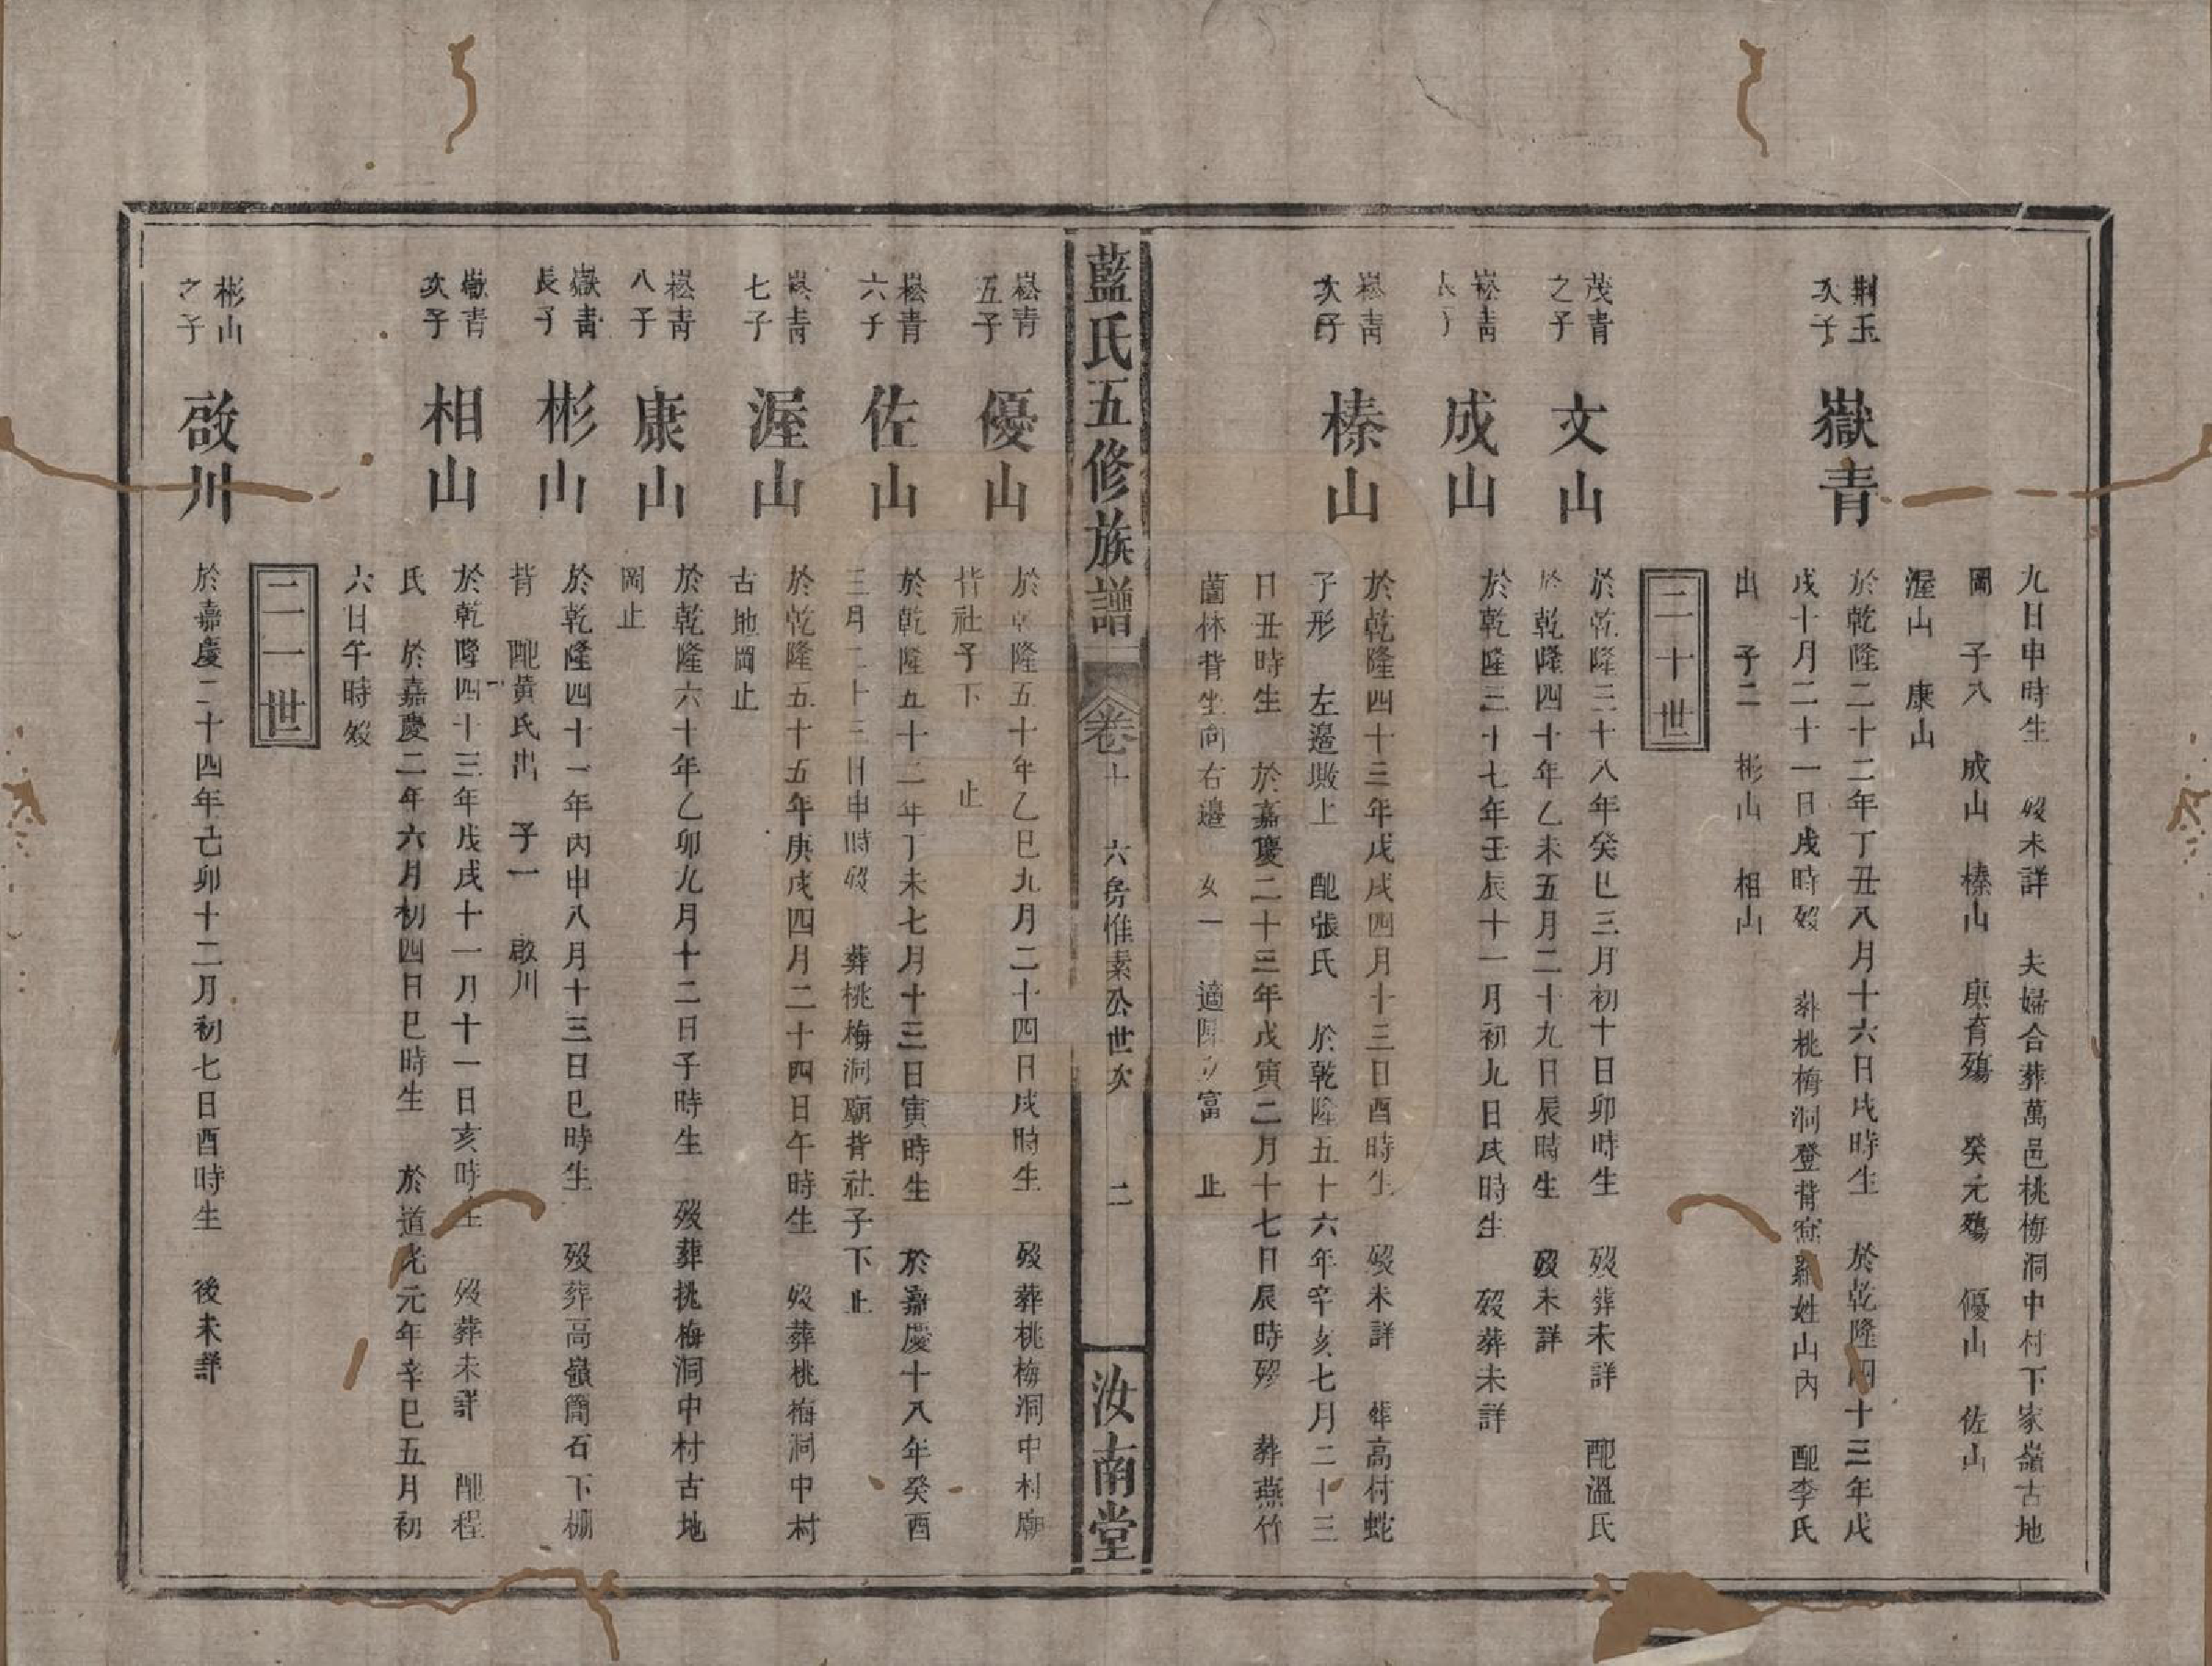 九日申時生 歿未詳 夫婦合葬萬邑桃梅洞中村下家嶺古地
岡 子八 成山 榛山 庚育殤 癸元殤 優山 佐山
渥山 康山
荆玉次子 嶽青 於乾隆二十二年丁丑八月十六日戌時生 於乾隆四十三年戊
戌十月二十一日戌時歿 葬桃梅洞登背窩羅姓山內 配李氏
出 子二 彬山 相山
二十世
茂青之子 文山 於乾隆三十八年癸巳三月初十日卯時生 歿葬未詳 配溫氏
於乾隆四十年乙未五月二十九日辰時生 歿未詳
崧青 成山 於乾隆三十七年壬辰十一月初九日戌時生 歿葬未詳
崧青次子 榛山 於乾隆四十三年戊戌四月十三日酉時生 歿未詳 葬高村蛇
子形 左邊墈上 配張氏 於乾隆五十六年辛亥七月二十三
日丑時生 於嘉慶二十三年戊寅二月十七日辰時歿 葬燕竹
薗林背坐向右邊 女一 適陳 富 止
藍氏五修族譜 卷十 六房惟素公世次 二 汝南堂
崧青五子 優山 於乾隆五十年乙巳九月二十四日戌時生 歿葬桃梅洞中村廟
背社子下 止
崧青六子 佐山 於乾隆五十二年丁未七月十三日寅時生 於嘉慶十八年癸酉
三月二十三日申時歿 葬桃梅洞廟背社子下 止
崧青七子 渥山 於乾隆五十五年庚戌四月二十四日午時生 歿葬桃梅洞中村
古地岡止
崧青八子 康山 於乾隆六十年乙卯九月十二日子時生 歿葬桃梅洞中村古地
岡止
嶽青長子 彬山 於乾隆四十一年丙申八月十三日巳時生 歿葬高嶺簡石下棚
背 配黃氏出 子一 啟川
嶽青次子 相山 於乾隆四十三年戊戌十一月十一日亥時生 歿葬未詳 配程
氏 於嘉慶二年六月初四日巳時生 於道光元年辛巳五月初
六日午時歿
二一世
彬山之子 啟川 於嘉慶二十四年己卯十二月初七日酉時生 後未詳